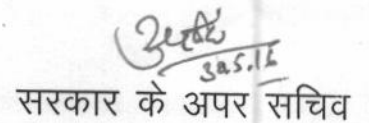 30.5.16
सरकार के अपर सचिव